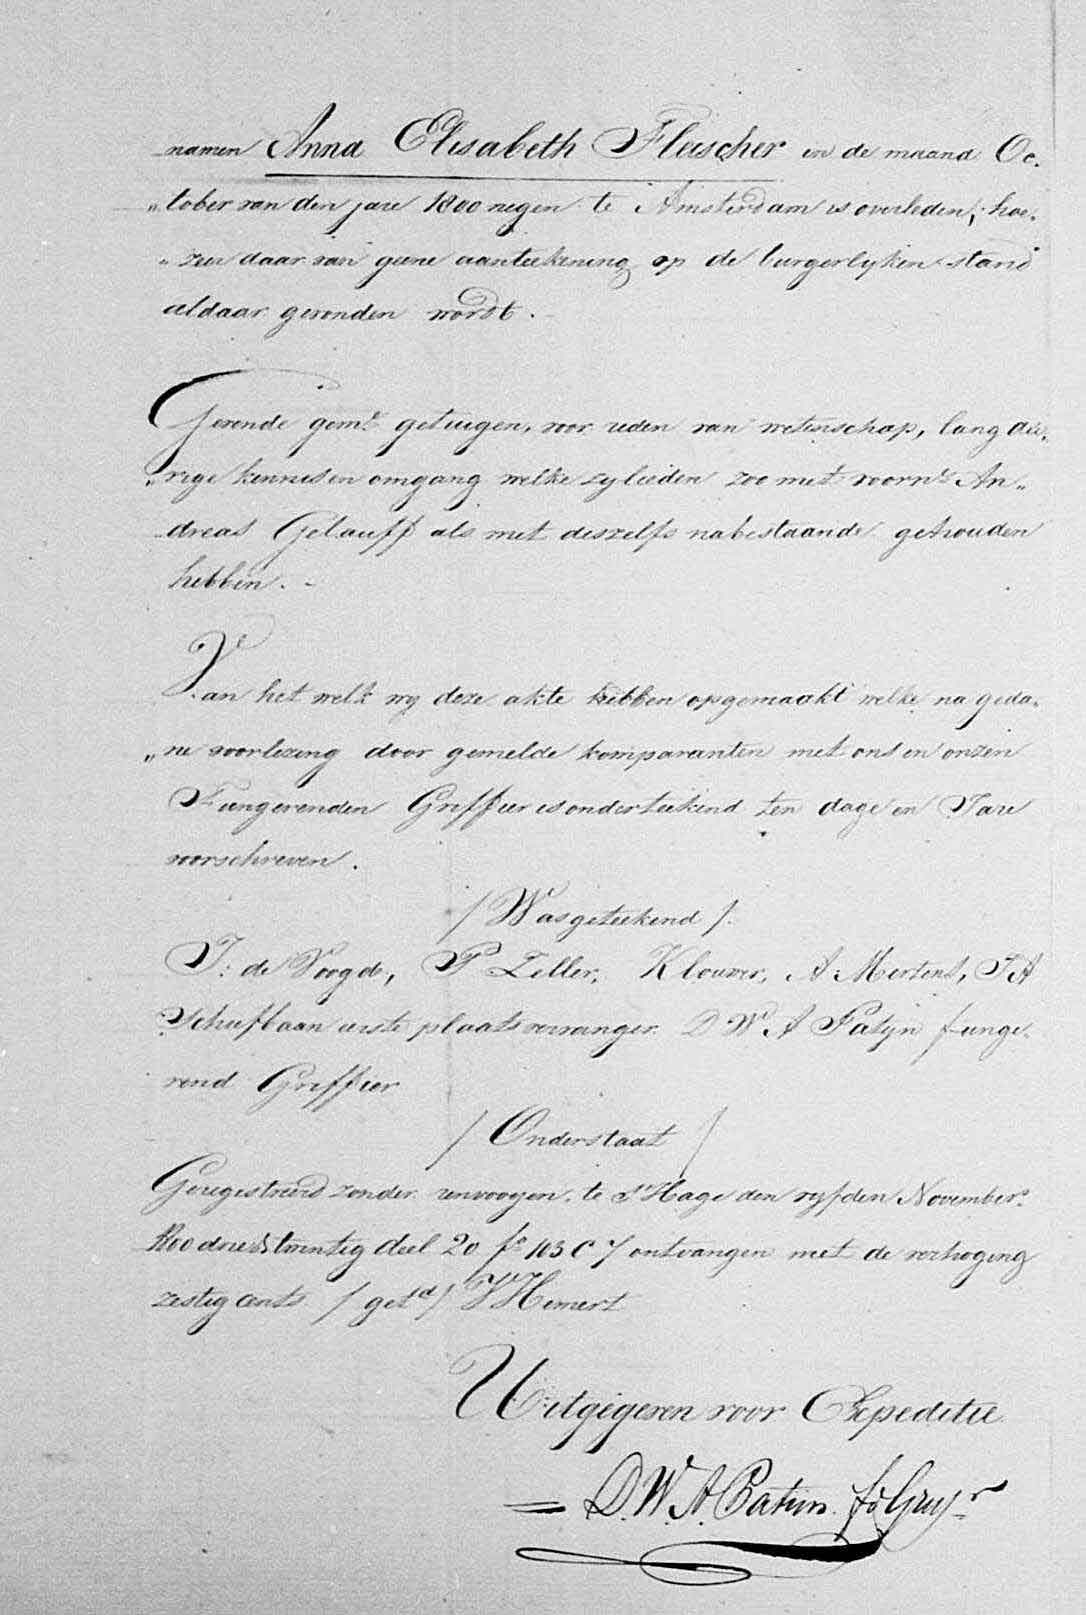 namen Anna Elisabeth Fleischer in de maand Oc-
„tober van den jare 1800 negen te Amsterdam is overleden, hoe-
„zeer daar van geene aanteekening op de burgerlyken stand
aldaar gevonden wordt.
Gevende gemde getuigen, voor reden van wetenschap, lang du-
„rige kennis en omgang welke zylieden zoo met voornde An-
„dreas Gelauff als met deszelfs nabestaande gehouden
hebben. -
Van het welk wy deze akte hebben opgemaakt welke na geda-
„ne voorlezing door gemelde komparanten met ons en onzen
Fungerenden Griffier is onderteekend ten dage en Jare
voorschreven.
/ Was geteekend /.
J: de Voogde, P Zeller, Klouwer, A: Mertens, J A
Schiefbaan eerste plaatsvervanger. D W A Patijn funge-
rend Griffier
/ Onderstaat /
Geregistreerd zonder renvooyen te s'Hage den vyfden November
1800 drie & twintig deel 20 fo 103 C 7 ontvangen met de verhoging
zestig cents / getd / Hemert
Uitgegeven voor Expeditie
= D. W. A. Patijn. fd Grifr